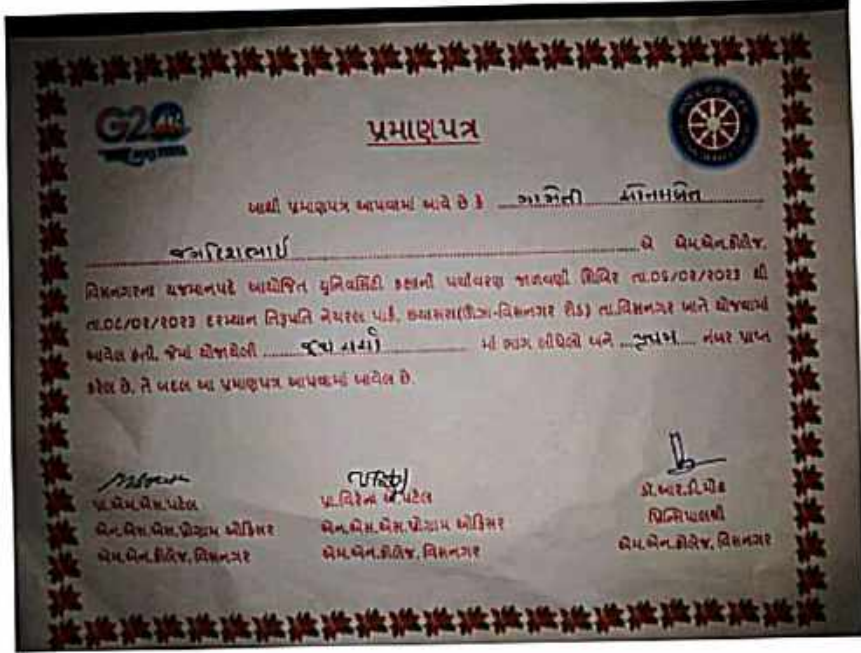 G20
પ્રમાણપત્ર
આથી પ્રમાણપત્ર આપવામાં આવે છે કે ગામેતી
જગદિશભાઈ એ એમ.એન.કોલેજ,
વિસનગરના યજમાનપદે આયોજિત યુનિવર્સિટી કક્ષાની પર્યાવરણ જાળવણી શિબિર તા.૦૬/૦૨/૨૦૨૩ થી
તા.૦૮/૦૨/૨૦૨૩ દરમ્યાન તિરૂપતિ નેચરલ પાર્ક, (ઊંઝા-વિસનગર રોડ) તા.વિસનગર ખાતે યોજવામાં
આવેલ હતી, જેમાં યોજાયેલી જૂથ ચર્ચા માં ભાગ લીધેલો અને પ્રથમ નંબર પ્રાપ્ત
કરેલ છે. તે બદલ આ પ્રમાણપત્ર આપવામાં આવેલ છે.
પ્રા.એમ.એસ.પટેલ
એન.એસ.એસ.પ્રોગ્રામ ઓફિસર
એમ.એન.કોલેજ, વિસનગર
પટેલ
એન.એસ.એસ.પ્રોગ્રામ ઓફિસર
એમ.એન.કોલેજ, વિસનગર
ડૉ.આર.ડી.મોઢ
પ્રિન્સિપાલશ્રી
એમ.એન.કોલેજ, વિસનગર